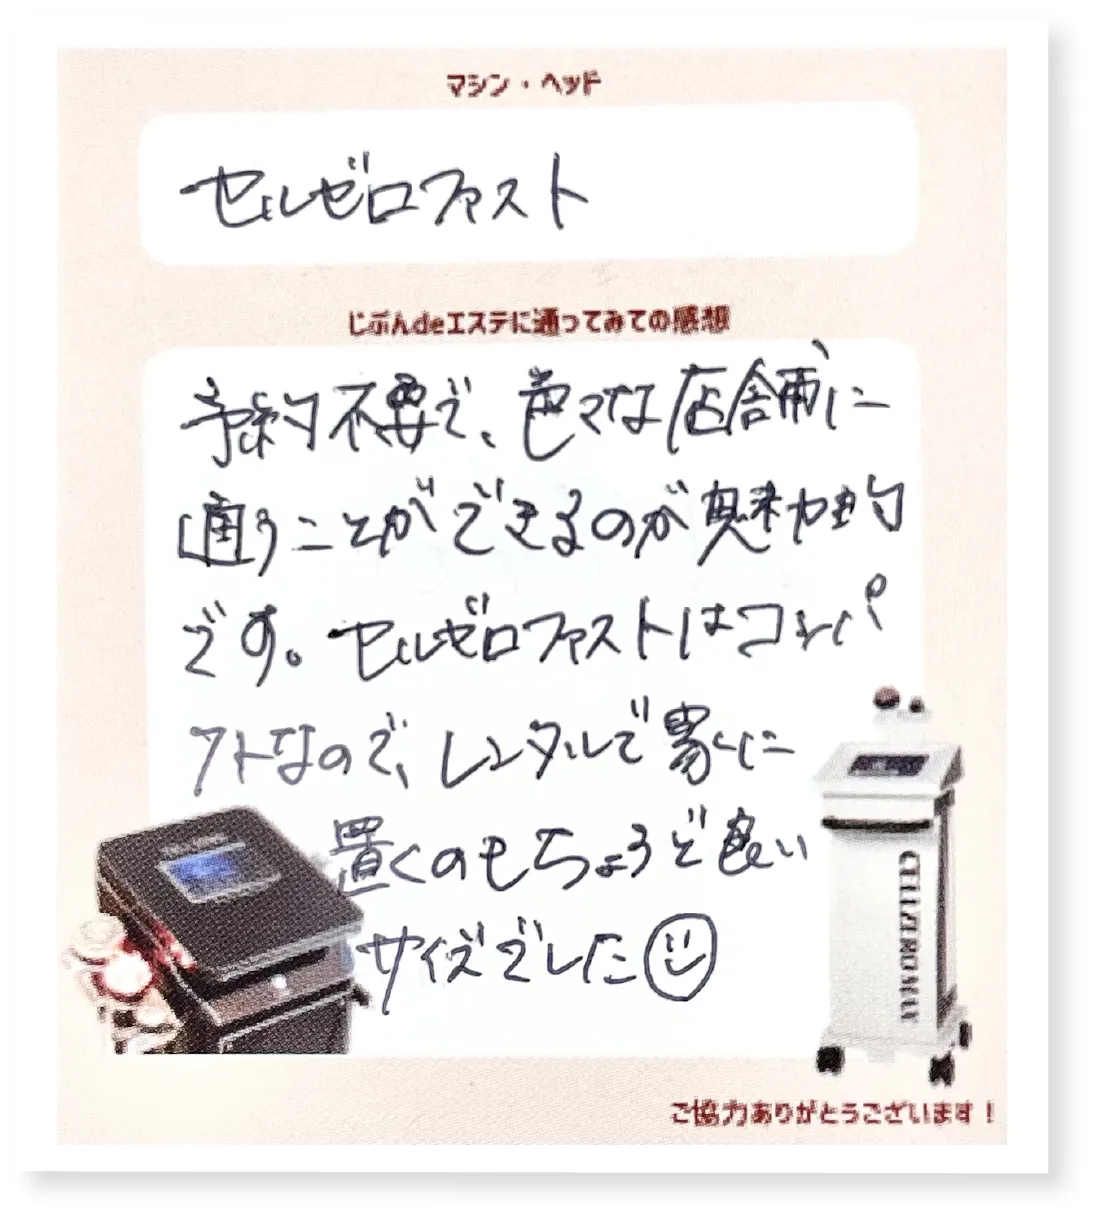 マシン・ヘッド
セルゼロファスト
じぶんdeエステに通ってみての感想
予約不要で、色々な店舗に
通うことができるのが魅力的
です。セルゼロファストはコンパ
クトなので、レンタルで家に
置くのもちょうど良い
サイズでした
CELLZERO MAX
ご協力ありがとうございます!